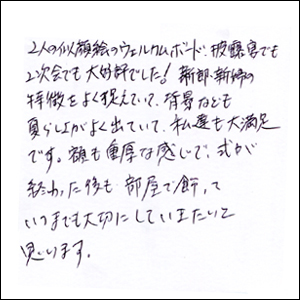 2人の似顔絵のウェルカムボード、披露宴でも
2次会でも大好評でした！新郎・新婦の
特徴をよく捉えていて、背景なども
夏らしさがよく出ていて、私達も大満足
です。額も重厚な感じで、式が
終わった後も部屋で飾って
いつまでも大切にしていきたいと
思います。